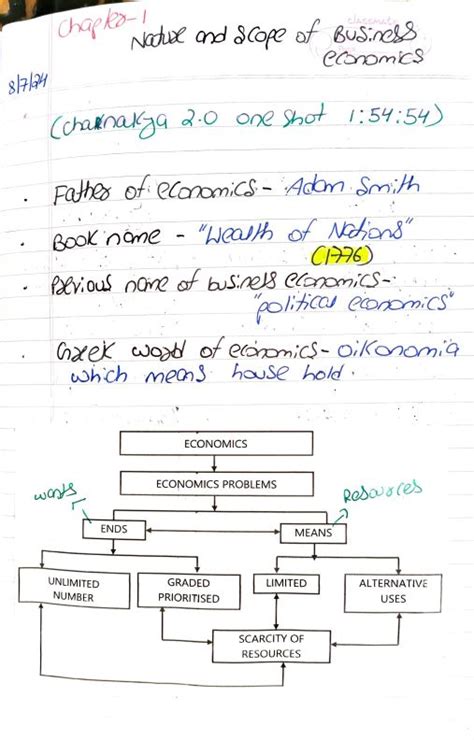 Chapter-1
classmate
Nature and Scope of Business
economics
8/7/24
(chanakya 2.0 one shot 1:54:54)
. Father of economics - Adam Smith
. Book name - "Wealth of Nations"
(1776)
. Previous name of business economics-
"political economics"
. Greek word of economics - Oikonomia
which means house hold.
ECONOMICS
ECONOMICS PROBLEMS
wants
Resources
ENDS
MEANS
UNLIMITED NUMBER
GRADED PRIORITISED
LIMITED
ALTERNATIVE USES
SCARCITY OF RESOURCES